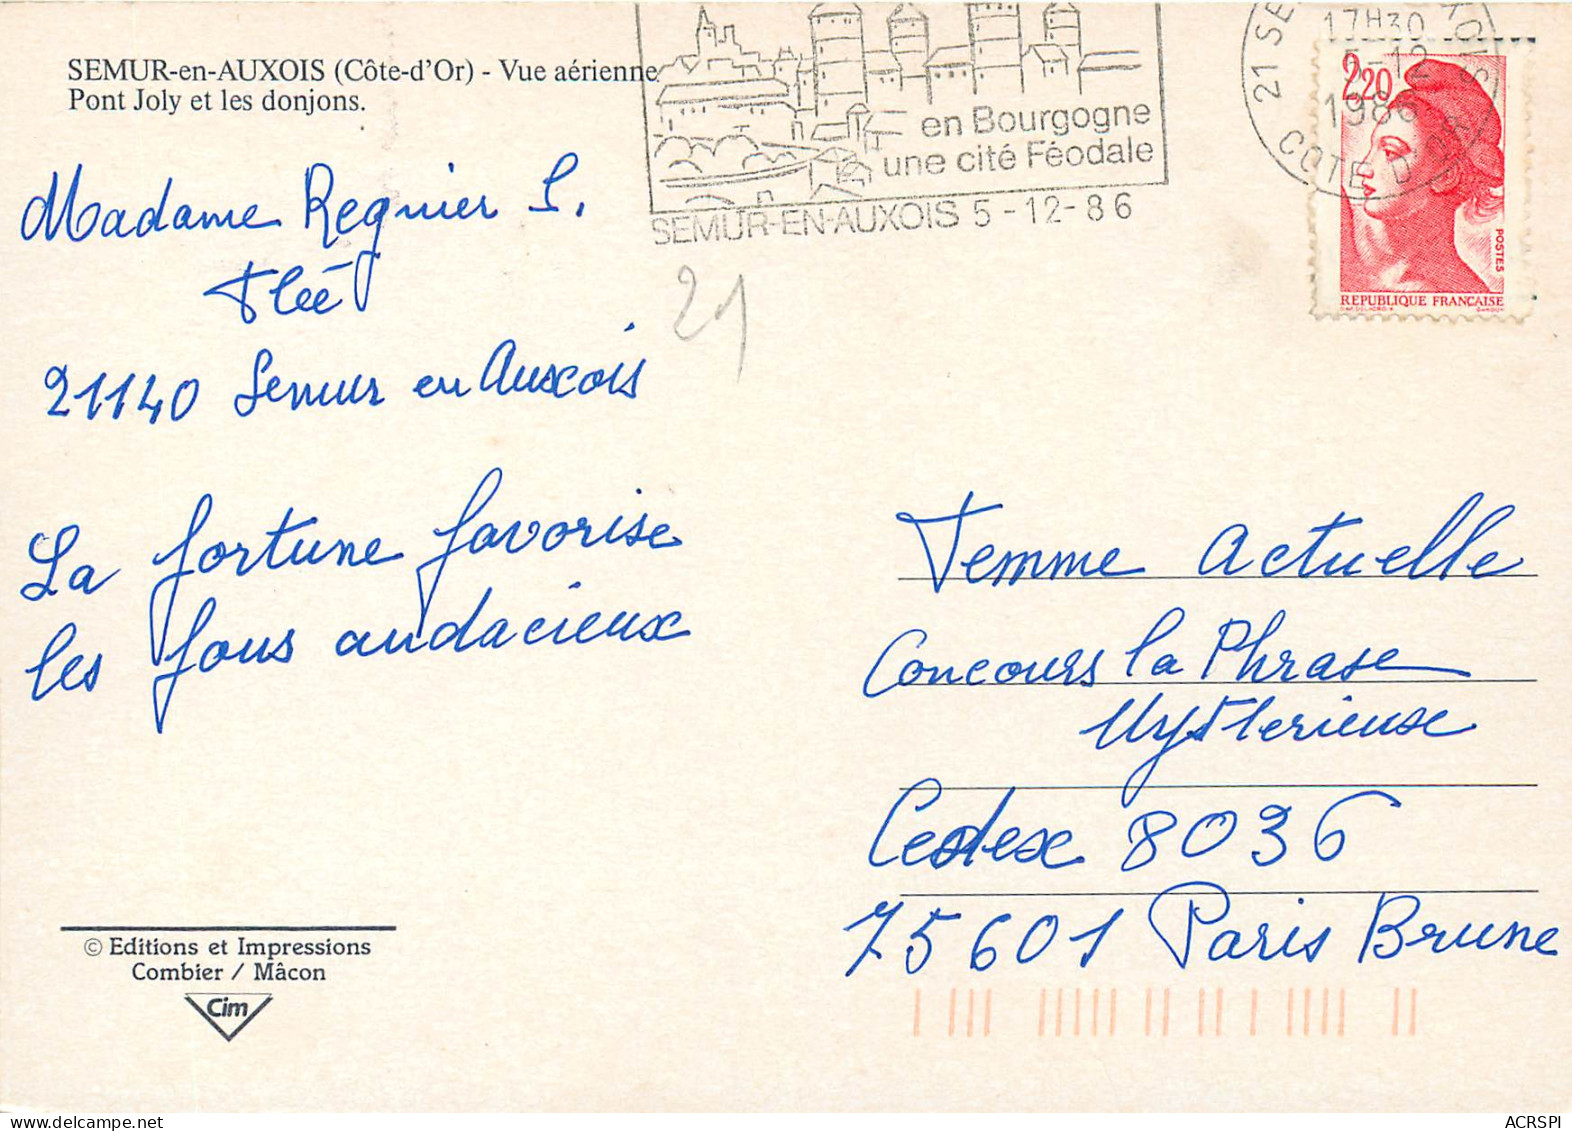 SEMUR-en-AUXOIS (Côte-d'Or) - Vue aérienne
Pont Joly et les donjons.
en Bourgogne
une cité Féodale
SEMUR-EN-AUXOIS 5-12-86
17H30
5-12
1986
21 SE
XOIS
COTE D'OR
2,20
POSTES
REPUBLIQUE FRANÇAISE
GANDON
Madame Regnier S.
Flée
21140 Semur en Auxois
21
La fortune favorise
les fous audacieux
Femme Actuelle
Concours la Phrase
Mysterieuse
Cedex 8036
75601 Paris Brune
© Editions et Impressions
Combier / Mâcon
Cim
ACRSPI